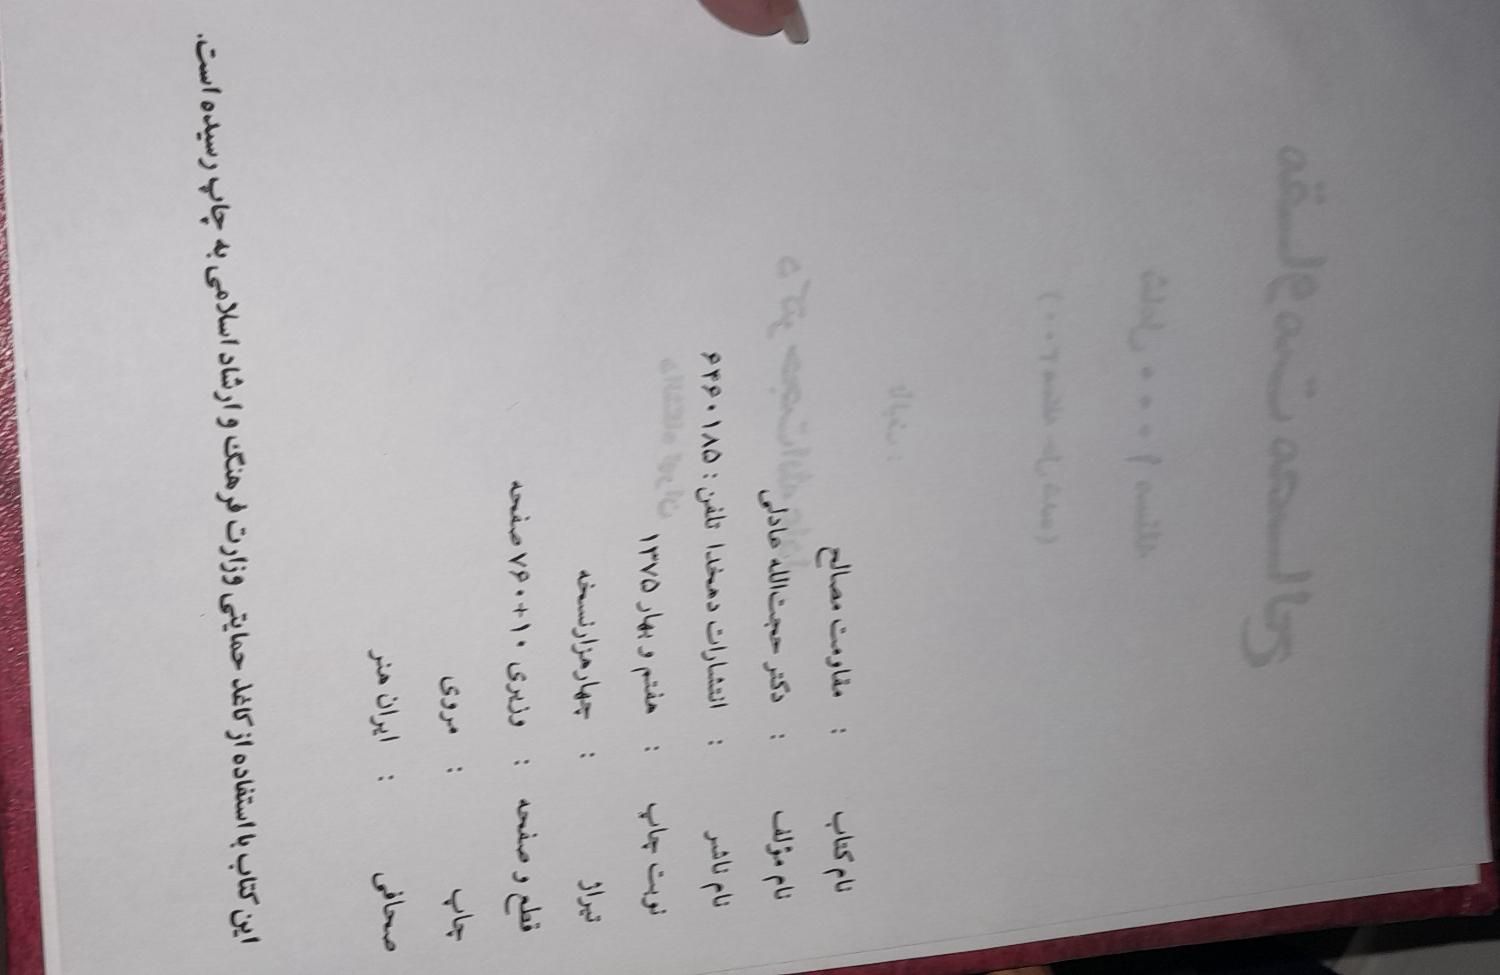 نام کتاب : مقاومت مصالح
نام مؤلف : دکتر حجت‌الله عادلی
نام ناشر : انتشارات دهخدا تلفن : ۶۴۶۰۱۸۵
نوبت چاپ : هفتم و بهار ۱۳۷۵
تیراژ : چهارهزارنسخه
قطع و صفحه : وزیری ۱۰+۷۶۰ صفحه
چاپ : مروی
صحافی : ایران هنر
این کتاب با استفاده از کاغذ حمایتی وزارت فرهنگ و ارشاد اسلامی به چاپ رسیده است.